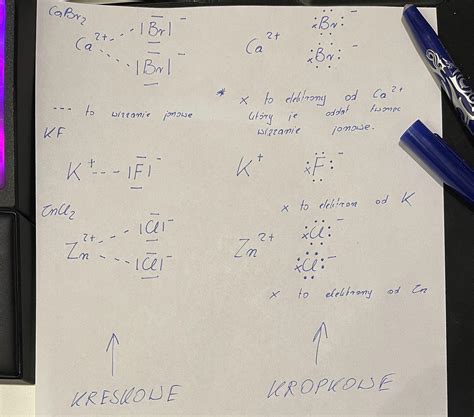 CaBr₂
Ca²⁺ --- |Br|⁻ |Br|⁻
Ca²⁺ ×Br⁻ ×Br⁻
--- to wiązanie jonowe
* x to elektrony od Ca²⁺
który je oddał tworząc
wiązanie jonowe.
KF
K⁺ --- |F|⁻
K⁺ ×F⁻
x to elektron od K
ZnCl₂
Zn²⁺ --- |Cl|⁻ |Cl|⁻
Zn²⁺ ×Cl⁻ ×Cl⁻
x to elektrony od Zn
KRESKOWE
KROPKOWE